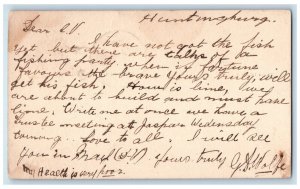 Huntingburg.
Dear S.V.
I have not got the fish
yet but there are talks of a
fishing party when if fortune
favours the brave yours truly, will
get his fish. How is lime, we
are about to build and must have
lime. Write me at once we have a
Trustee meeting at Jasper Wednesday
coming. Love to all. I will see
you in May (D.V.) Yours truly
My Health is very poor.